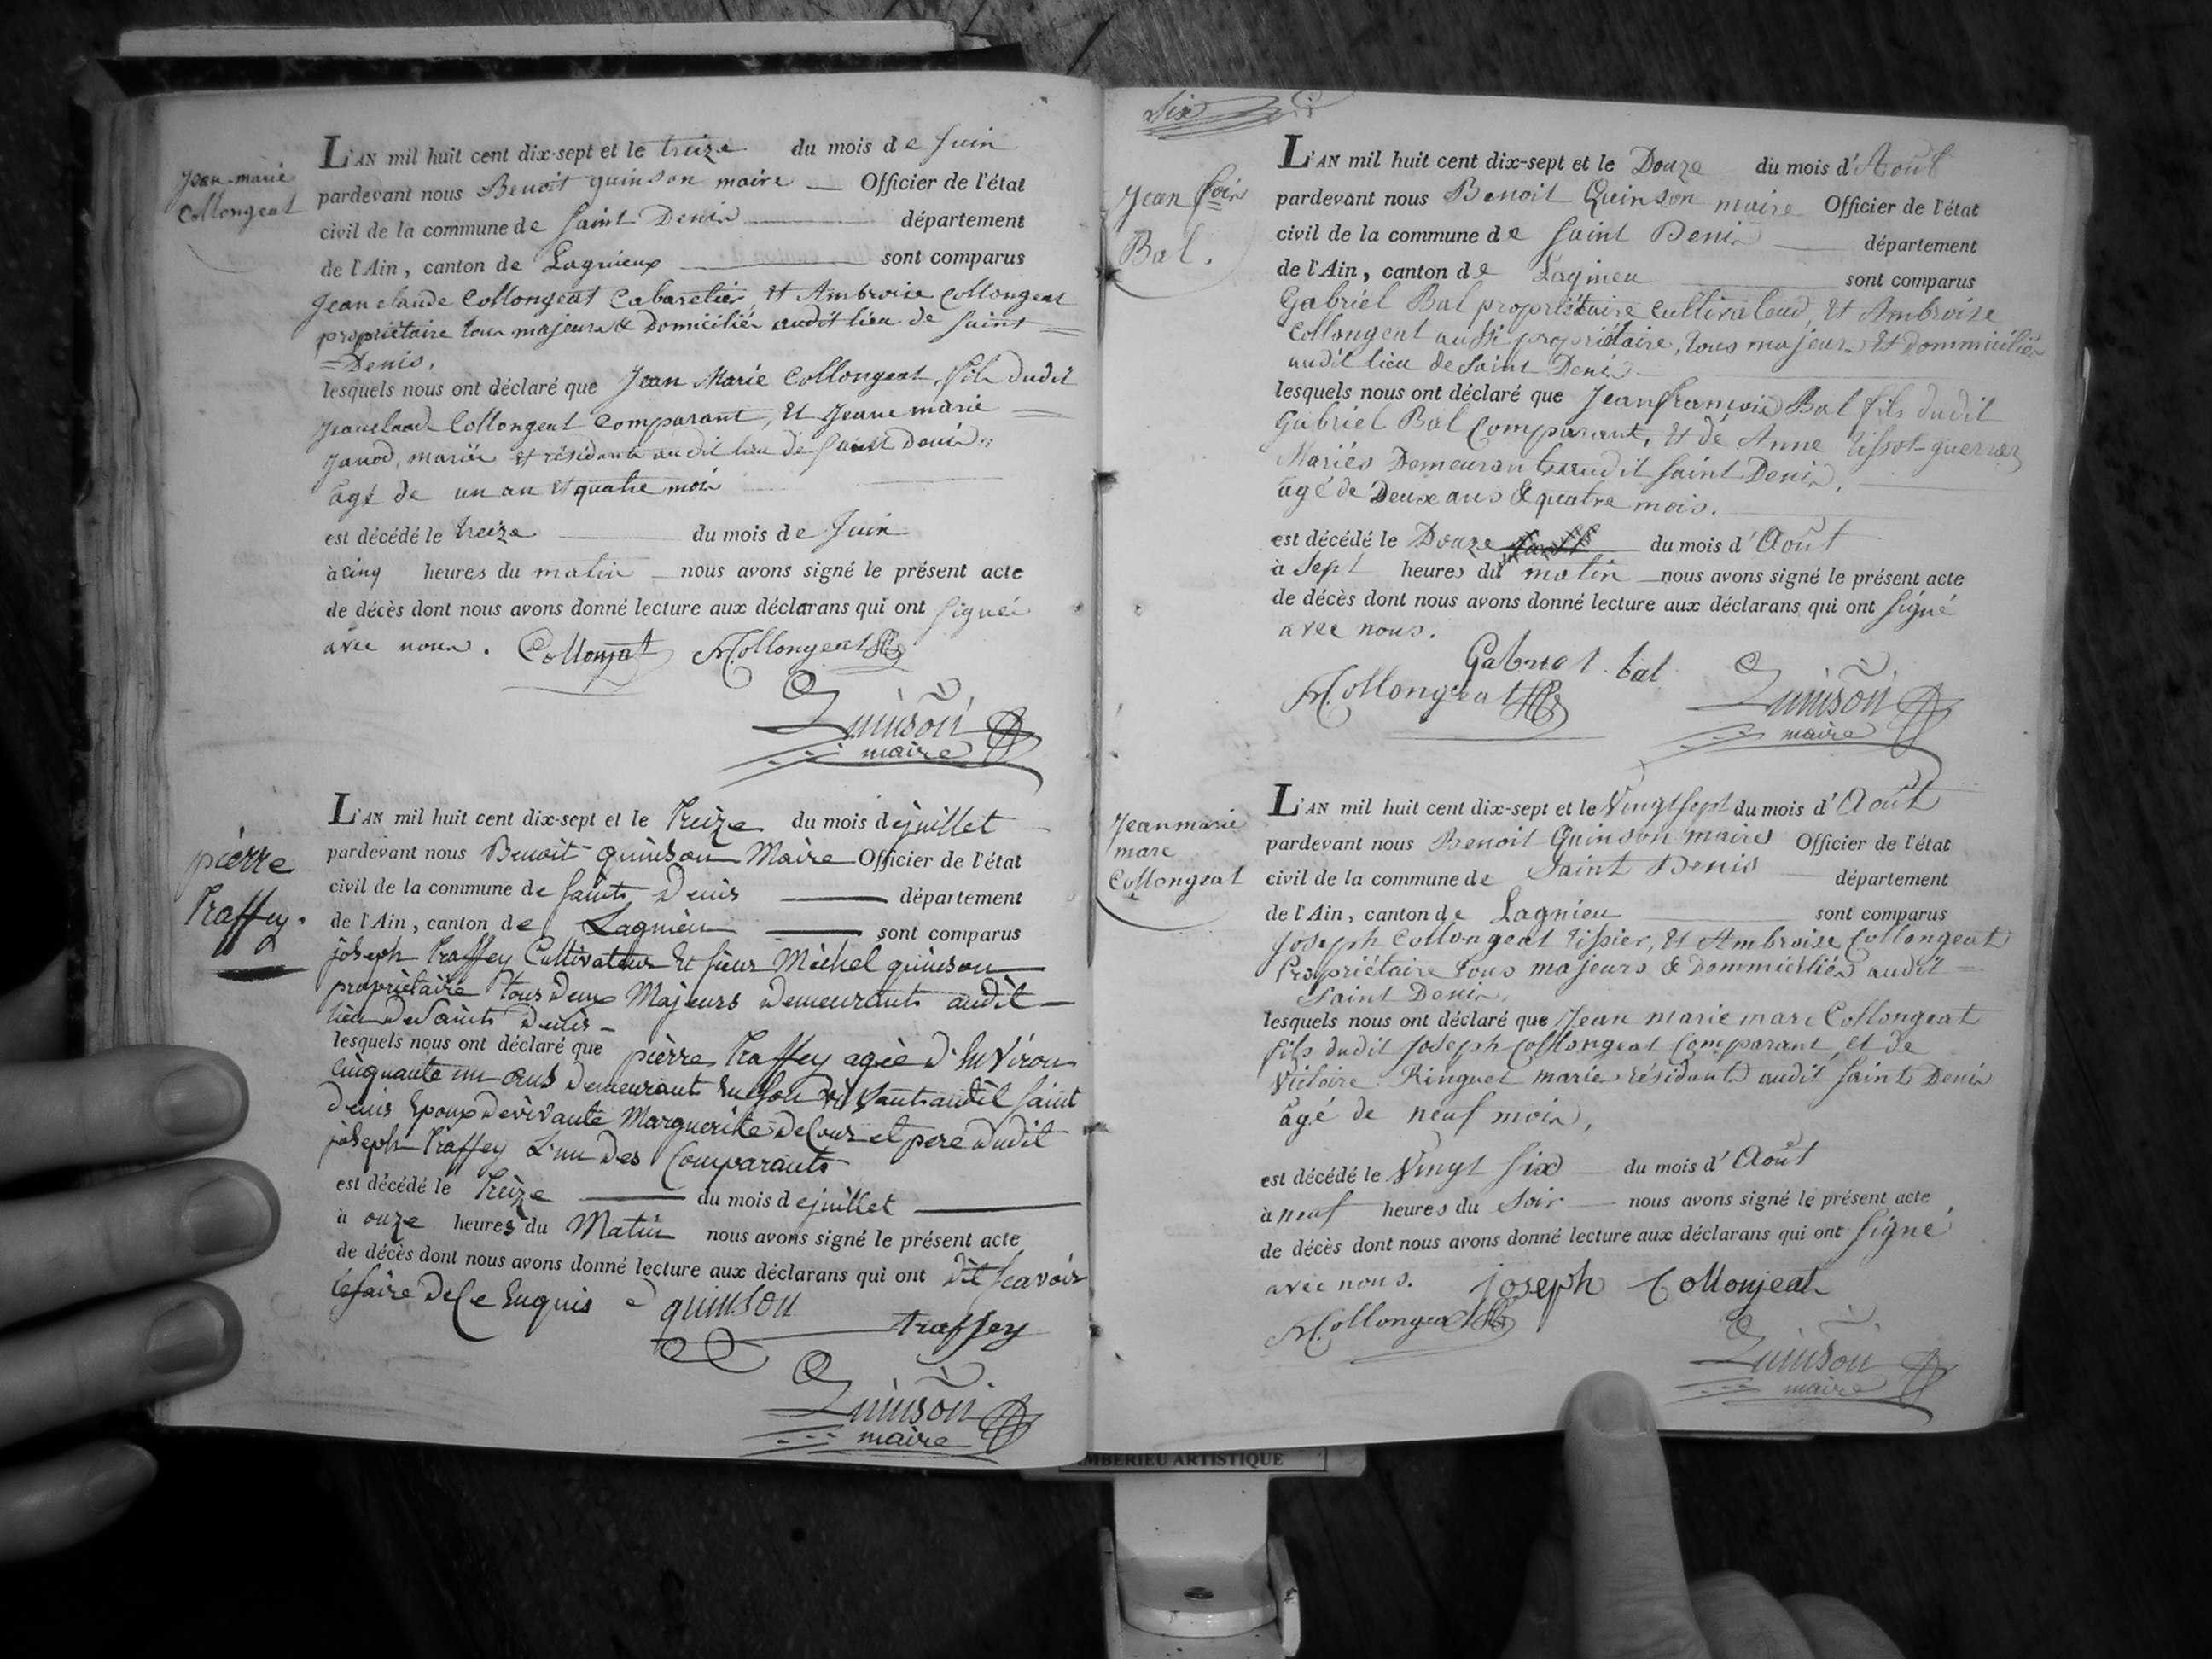 Jean-marie
Collongeat
L'AN mil huit cent dix-sept et le treize du mois de Juin
pardevant nous Benoit quinson maire Officier de l'état
civil de la commune de Saint Denis département
de l'Ain, canton de Lagnieux sont comparus
Jean claude Collongeat Cabaretier, et Ambroise Collongeat
propriétaire tous majeurs & Domiciliés audit lieu de Saint =
=Denis.
lesquels nous ont déclaré que Jean Marie Collongeat, fils dudit
Jeanclaude Collongeat Comparant, et Jeane marie
Janod, mariés et résidants audit lieu de Saint Denis
âgé de un an et quatre mois
est décédé le treize du mois de Juin
à cinq heures du matin nous avons signé le présent acte
de décès dont nous avons donné lecture aux déclarans qui ont signés
avec nous. Collonjat A Collongeat
Quinson
maire
pièrre
Traffey.
L'AN mil huit cent dix-sept et le Treize du mois de juillet
pardevant nous Benoit quinson Maire Officier de l'état
civil de la commune de Saints Denis département
de l'Ain, canton de Lagnieu sont comparus
joseph Traffey Cultivateur Et sieur Michel quinson
propriètaire tous deux Majeurs demeurants audit
lieu de Saints Denis
lesquels nous ont déclaré que pièrre Traffey agée d'Environ
Cinquante un ans demeurant En son vivant audit Saint
Denis Epoux de vivante Marguerite et pere dudit
joseph Traffey L'un des Comparants
est décédé le Treize du mois de juillet
à onze heures du Matin nous avons signé le présent acte
de décès dont nous avons donné lecture aux déclarans qui ont dit scavoir
le faire de Ce Enquis quinson
traffey
Quinson
maire
Six
Jean fois
Bal.
L'AN mil huit cent dix-sept et le Douze du mois d'Août
pardevant nous Benoit Quinson maire Officier de l'état
civil de la commune de Saint Denis département
de l'Ain, canton de Lagnieu sont comparus
Gabriel Bal propriétaire cultivateur, et Ambroise
Collongeat aussi propriétaire, tous majeurs et dommiciliés
audit lieu de Saint Denis
lesquels nous ont déclaré que Jean francois Bal fils dudit
Gabriel Bal Comparant, et de Anne Tissot-guerraz
Mariés Demeurants audit Saint Denis,
agé de Deux ans & quatre mois.
est décédé le Douze du mois d'Août
à Sept heures du matin nous avons signé le présent acte
de décès dont nous avons donné lecture aux déclarans qui ont signé
avec nous.
Gabriel bal
A Collongeat
Quinson
maire
Jeanmarie
marc
Collongeat
L'AN mil huit cent dix-sept et le Vingt sept du mois d'Août
pardevant nous Benoit Quinson maires Officier de l'état
civil de la commune de Saint Denis département
de l'Ain, canton de Lagnieu sont comparus
Joseph Collongeat Tissier, et Ambroise Collongeat
Propriétaire tous majeurs & Dommiciliés audit =
Saint Denis,
lesquels nous ont déclaré que Jean marie marc Collongeat
fils dudit Joseph Collongeat Comparant, et de
Victoire Ringuet mariés résidants audit Saint Denis
âgé de neuf mois,
est décédé le Vingt six du mois d'Août
à neuf heures du Soir nous avons signé le présent acte
de décès dont nous avons donné lecture aux déclarans qui ont signé
avec nous. joseph Collonjeat
A Collongeat
Quinson
maire
AMBERIEU ARTISTIQUE